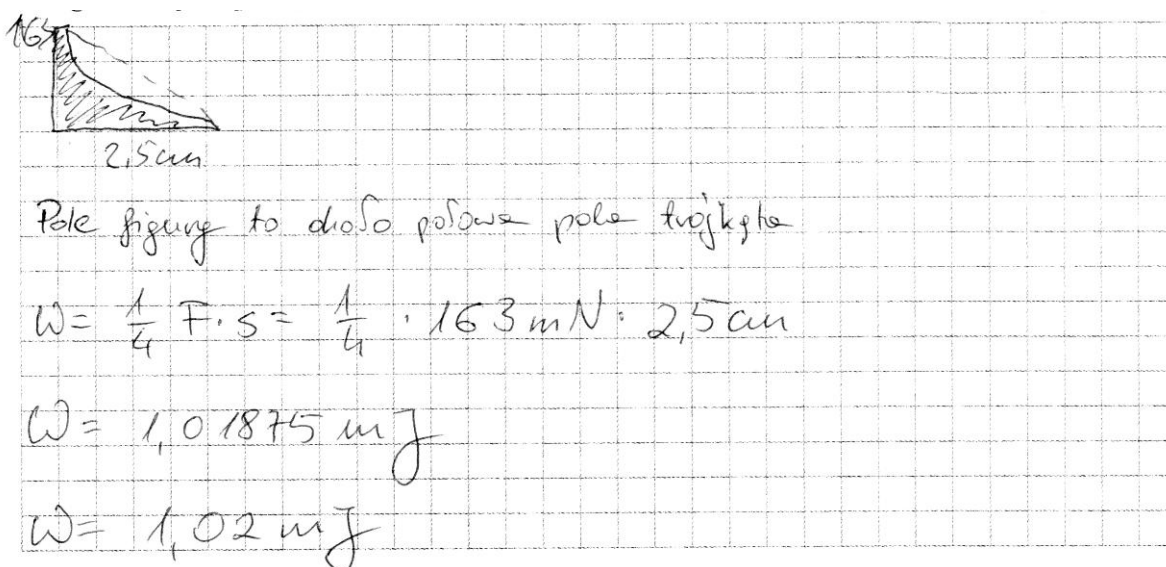 163
2,5cm
Pole figury to około połowa pola trójkąta
W = 1/4 F·s = 1/4 · 163mN · 2,5cm
W = 1,01875 mJ
W = 1,02 mJ